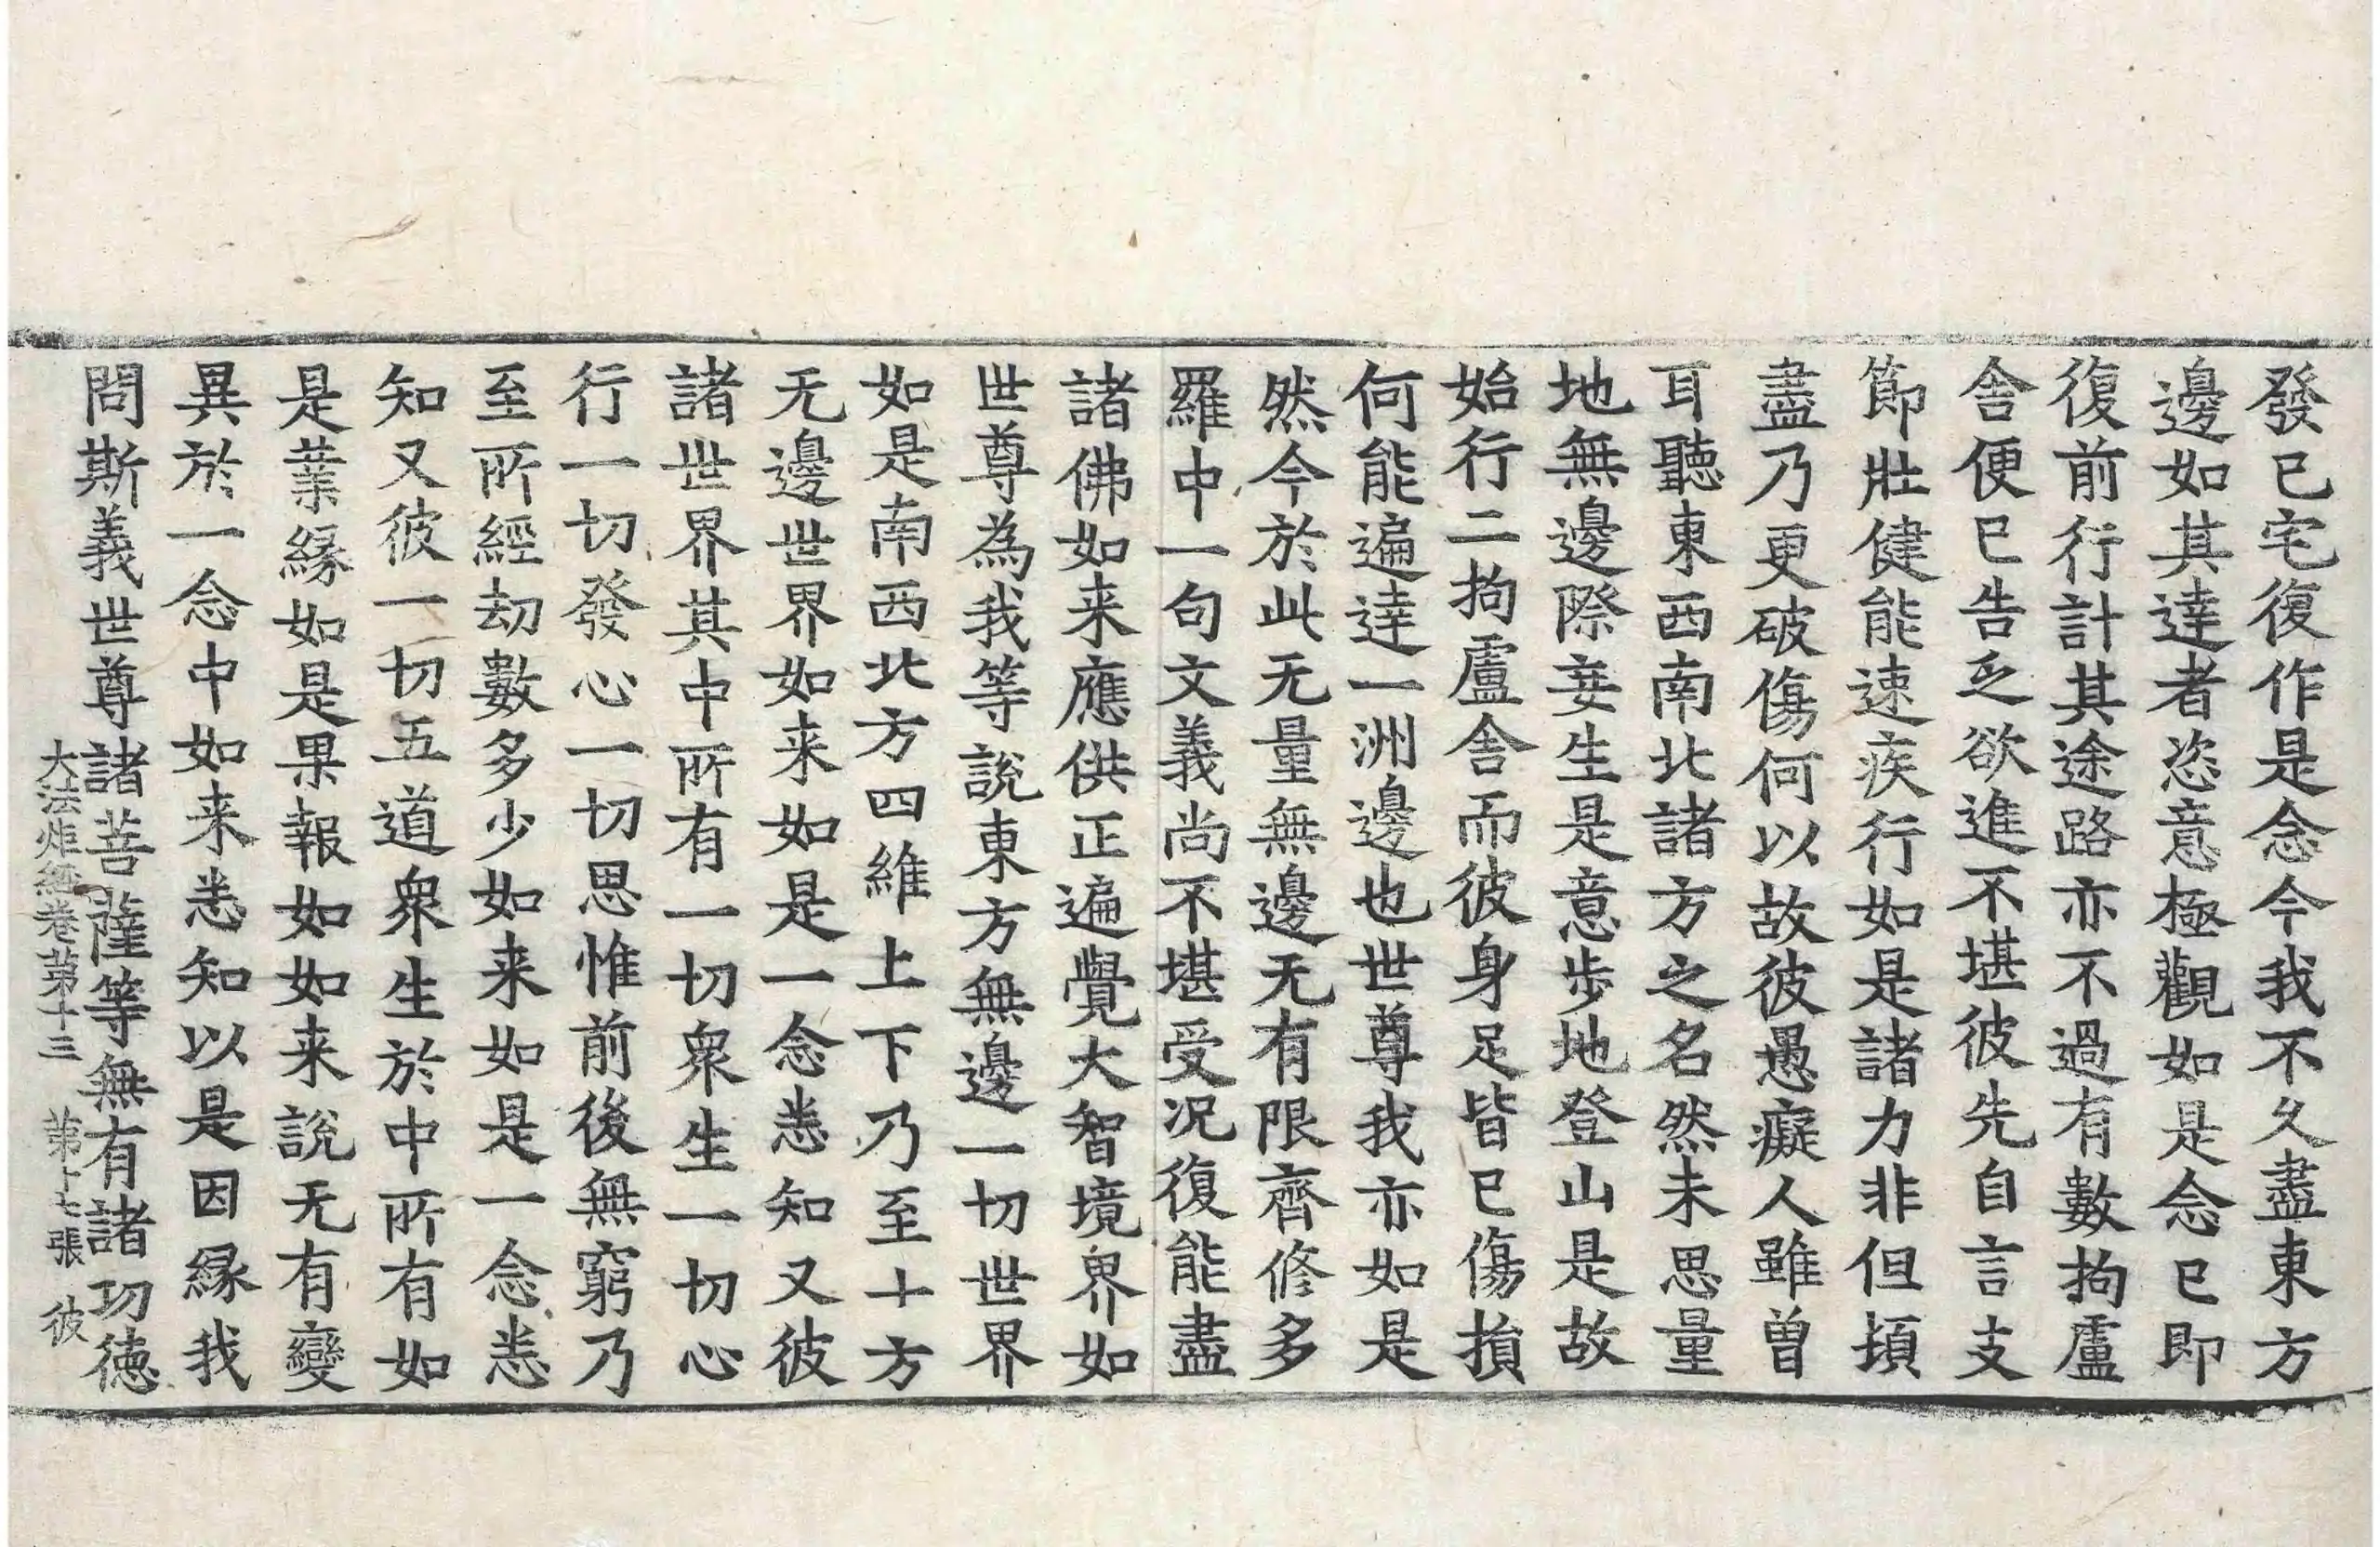 發已宅復作是念今我不久盡東方
邊如其達者恣意極觀如是念已即
復前行計其途路亦不過有數拘盧
舍便已告乏欲進不堪彼先自言支
節壯健能速疾行如是諸力非但頓
盡乃更破傷何以故彼愚癡人雖曽
耳聽東西南北諸方之名然未思量
地無邊際妄生是意步地登山是故
始行二拘盧舍而彼身足皆已傷損
何能遍達一洲邊也世尊我亦如是
然今於此无量無邊无有限齊修多
羅中一句文義尚不堪受况復能盡
諸佛如来應供正遍覺大智境界如
世尊為我等說東方無邊一切世界
如是南西北方四維上下乃至十方
无邊世界如来如是一念悉知又彼
諸世界其中所有一切衆生一切心
行一切發心一切思惟前後無窮乃
至所經劫數多少如来如是一念悉
知又彼一切五道衆生於中所有如
是業緣如是果報如如来說无有變
異於一念中如来悉知以是因緣我
問斯義世尊諸菩薩等無有諸功徳
大法炬經卷第十三 第十七張 彼